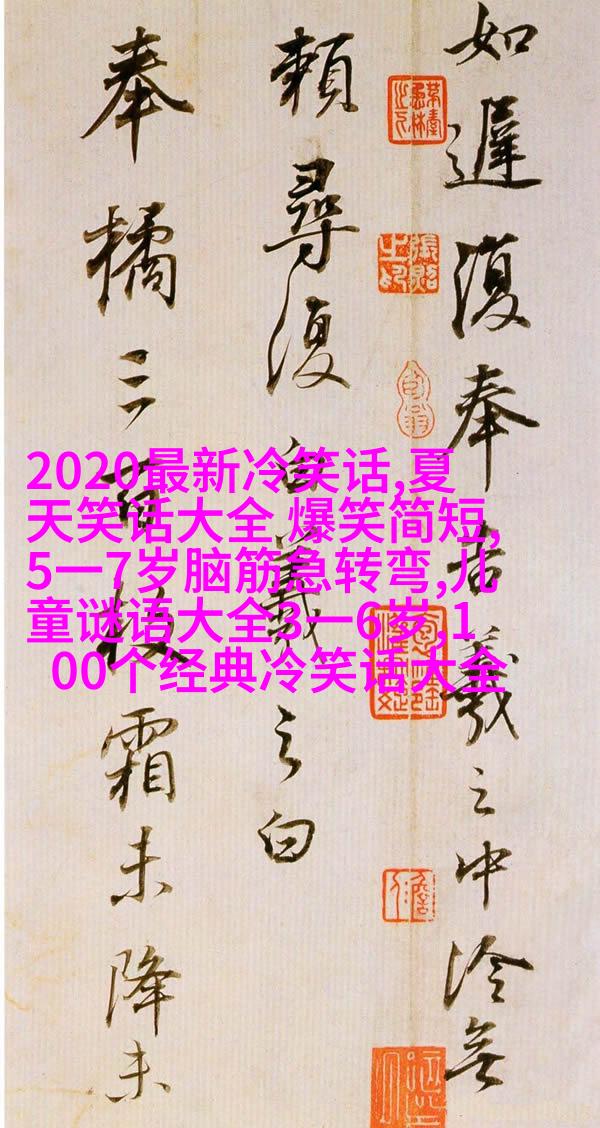 如遲復奉告羲之中冷無
賴尋復白羲之白
奉橘三百枚霜未降未
2020最新冷笑话,夏
天笑话大全 爆笑简短,
5一7岁脑筋急转弯,儿
童谜语大全3一6岁,1
00个经典冷笑话大全